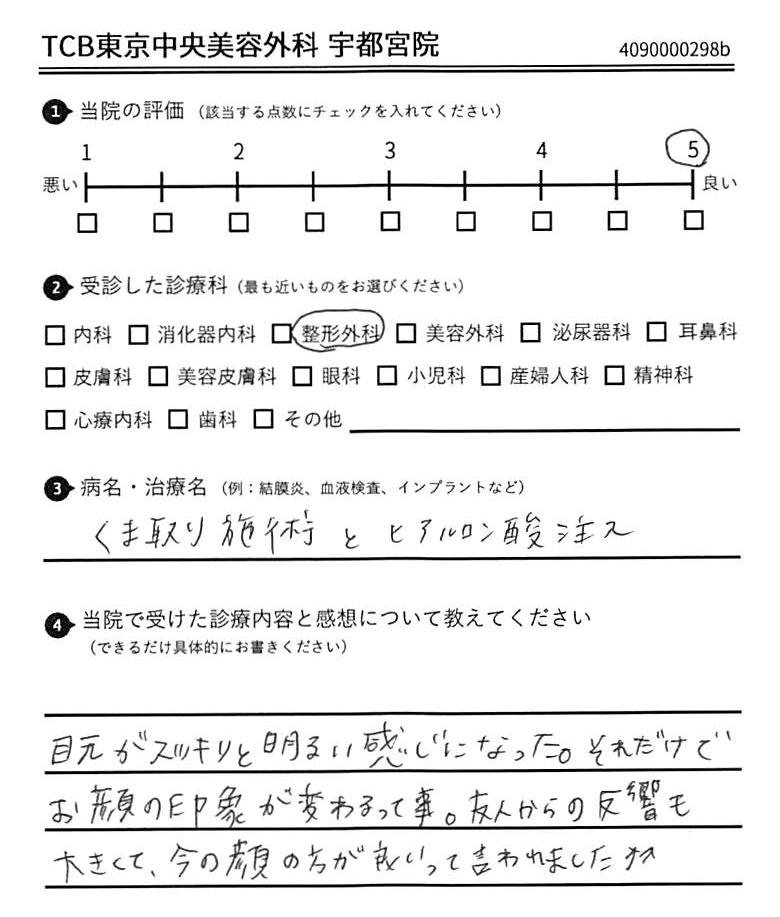 TCB東京中央美容外科 宇都宮院
4090000298b
1 当院の評価 (該当する点数にチェックを入れてください)
1 2 3 4 5
悪い 良い
2 受診した診療科 (最も近いものをお選びください)
□ 内科 □ 消化器内科 □ 整形外科 □ 美容外科 □ 泌尿器科 □ 耳鼻科
□ 皮膚科 □ 美容皮膚科 □ 眼科 □ 小児科 □ 産婦人科 □ 精神科
□ 心療内科 □ 歯科 □ その他
3 病名・治療名 (例:結膜炎、血液検査、インプラントなど)
くま取り施術 と ヒアルロン酸 注入
4 当院で受けた診療内容と感想について教えてください
(できるだけ具体的にお書きください)
目元がスッキリと明るい感じになった。それだけで
お顔の印象が変わるって事。友人からの反響も
大きくて、今の顔の方が良いって言われました